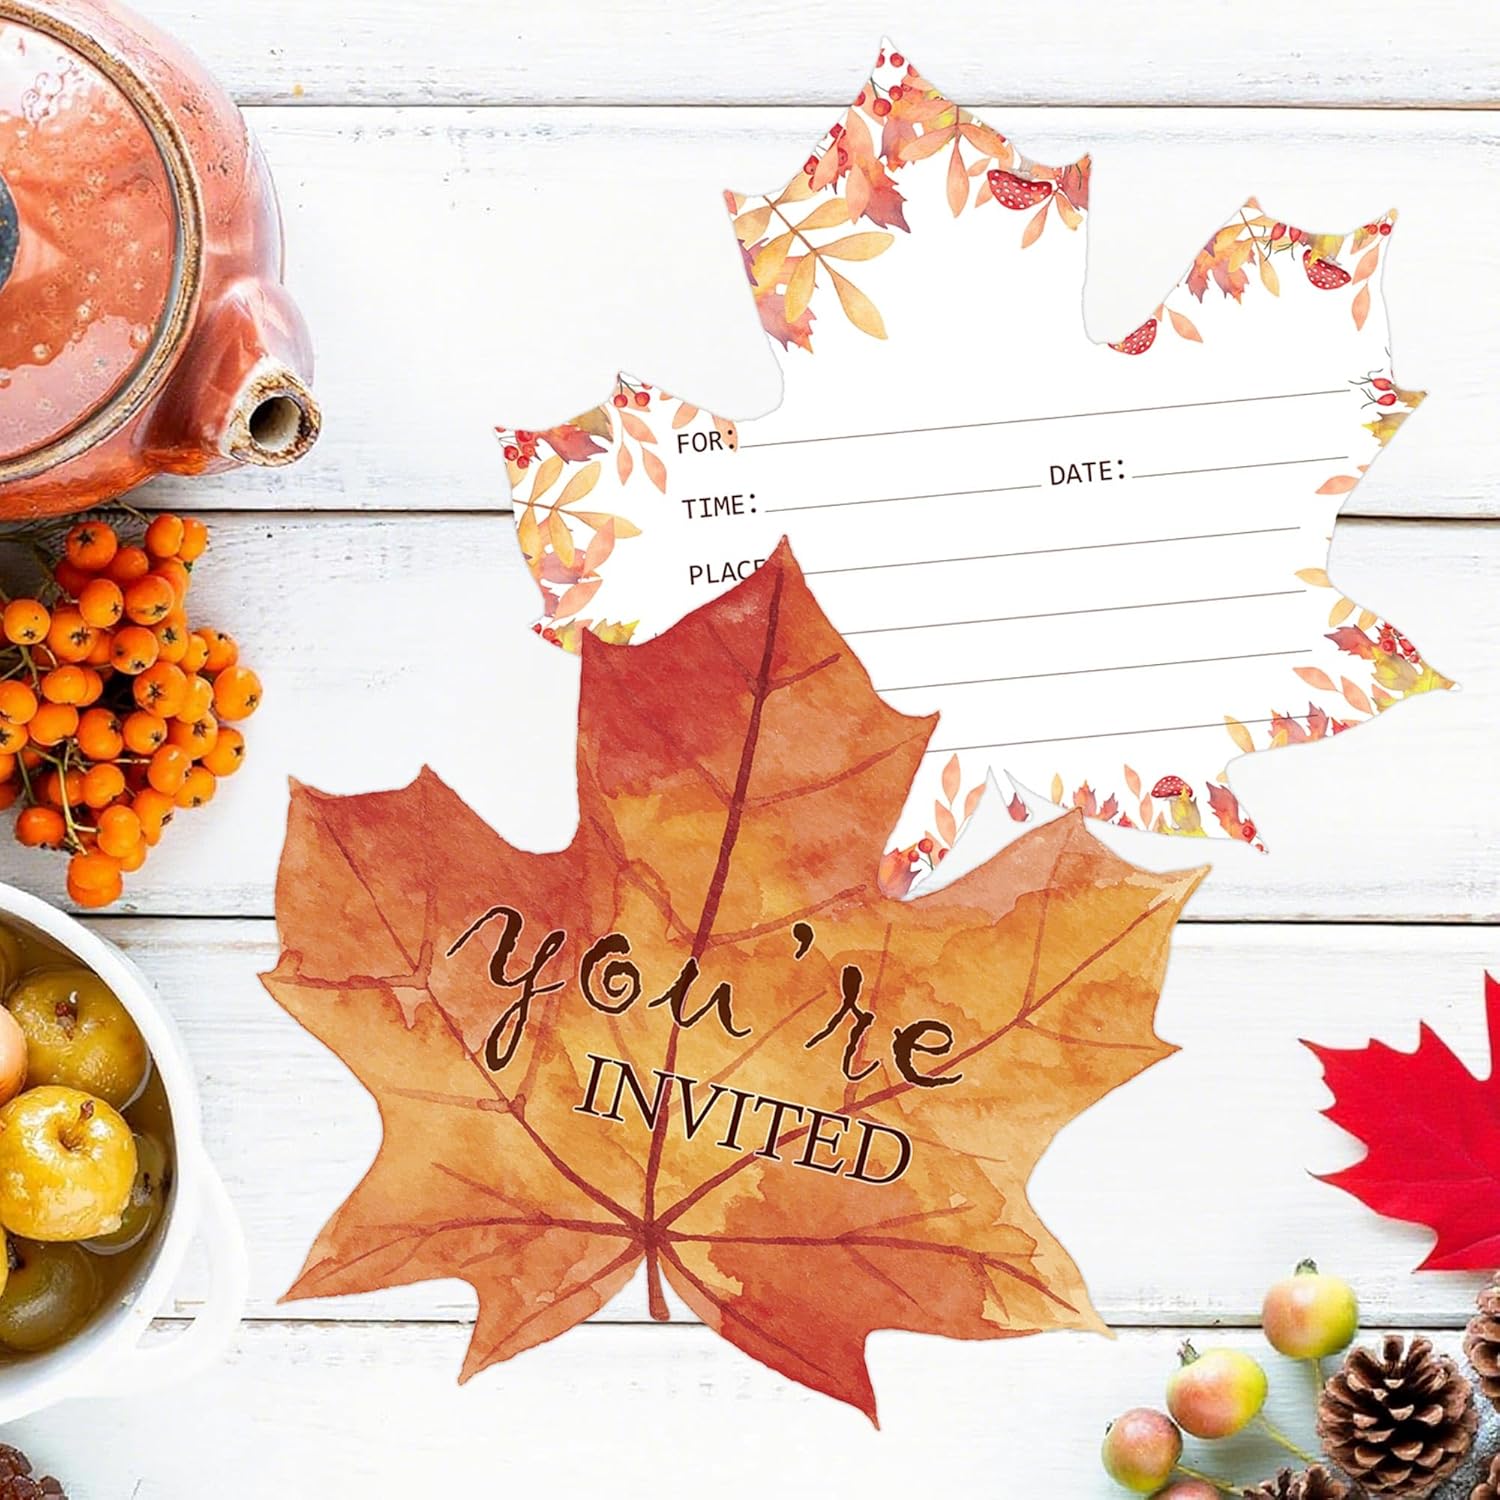 FOR:
TIME: DATE:
PLACE
you're
INVITED